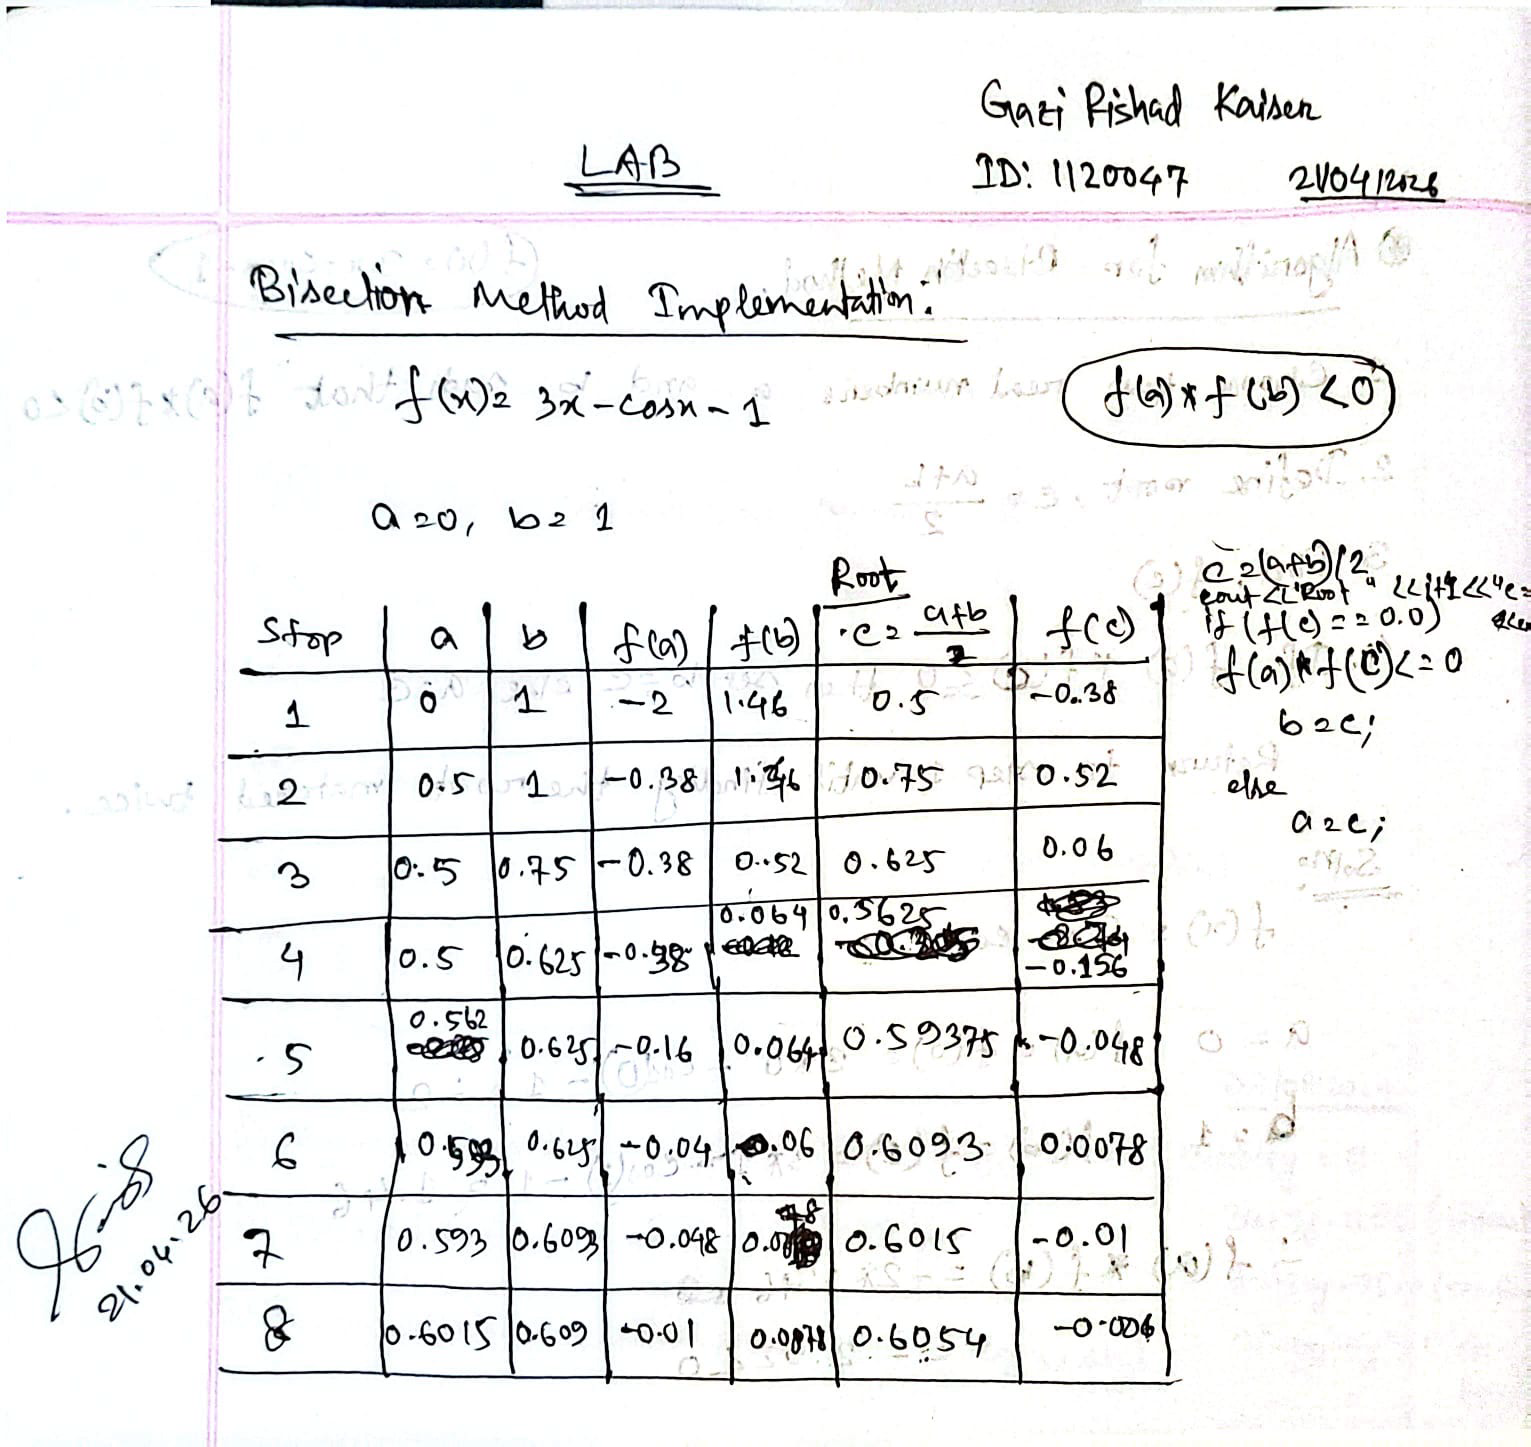 Gazi Rishad Kaiser
LAB
ID: 1120047 21/04/2026
Bisection Method Implementation:
f(x) = 3x - cosx - 1
f(a) * f(b) < 0
a = 0, b = 1
Root
Step a b f(a) f(b) c = a+b/2 f(c)
1 0 1 -2 1.46 0.5 -0.38
2 0.5 1 -0.38 1.46 0.75 0.52
3 0.5 0.75 -0.38 0.52 0.625 0.06
4 0.5 0.625 -0.38 0.064 0.5625 -0.156
5 0.562 0.625 -0.16 0.064 0.59375 -0.048
6 0.593 0.625 -0.04 0.06 0.6093 0.0078
7 0.593 0.6093 -0.048 0.0078 0.6015 -0.01
8 0.6015 0.609 -0.01 0.0078 0.6054 -0.006
c = (a+b)/2
cout << "Root" << i+1 << "c=
if (f(c) == 0.0)
f(a) * f(c) <= 0
b = c;
else
a = c;
21.04.26